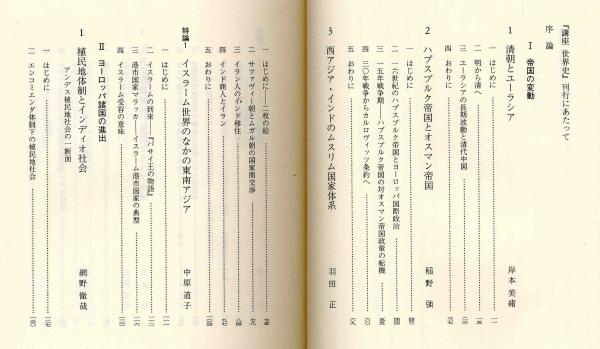 『講座 世界史』刊行にあたって
序論
Ⅰ 帝国の変動
1 清朝とユーラシア 岸本美緒
一 はじめに
二 明から清へ
三 ユーラシアの長期波動と清代中国
四 おわりに
2 ハプスブルク帝国とオスマン帝国 稲野 強
一 はじめに
二 一六世紀のハプスブルク帝国とヨーロッパ国際政治
三 一五年戦争期――ハプスブルク帝国の対オスマン帝国政策の転機
四 三〇年戦争からカルロヴィッツ条約へ
五 おわりに
3 西アジア・インドのムスリム国家体系 羽田 正
一 はじめに――二枚の絵
二 サファヴィー朝とムガル朝の国家間交渉
三 イラン人のインド移住
四 インド商人とイラン
五 おわりに
特論1 イスラーム世界のなかの東南アジア 中原道子
一 はじめに
二 イスラームの到来――『パサイ王の物語』
三 港市国家マラッカ――イスラーム港市国家の典型
四 イスラーム受容の意味
Ⅱ ヨーロッパ諸国の進出
1 植民地体制とインディオ社会 網野徹哉
アンデス植民地社会の一断面
一 はじめに
二 エンコミエンダ体制下の植民地社会